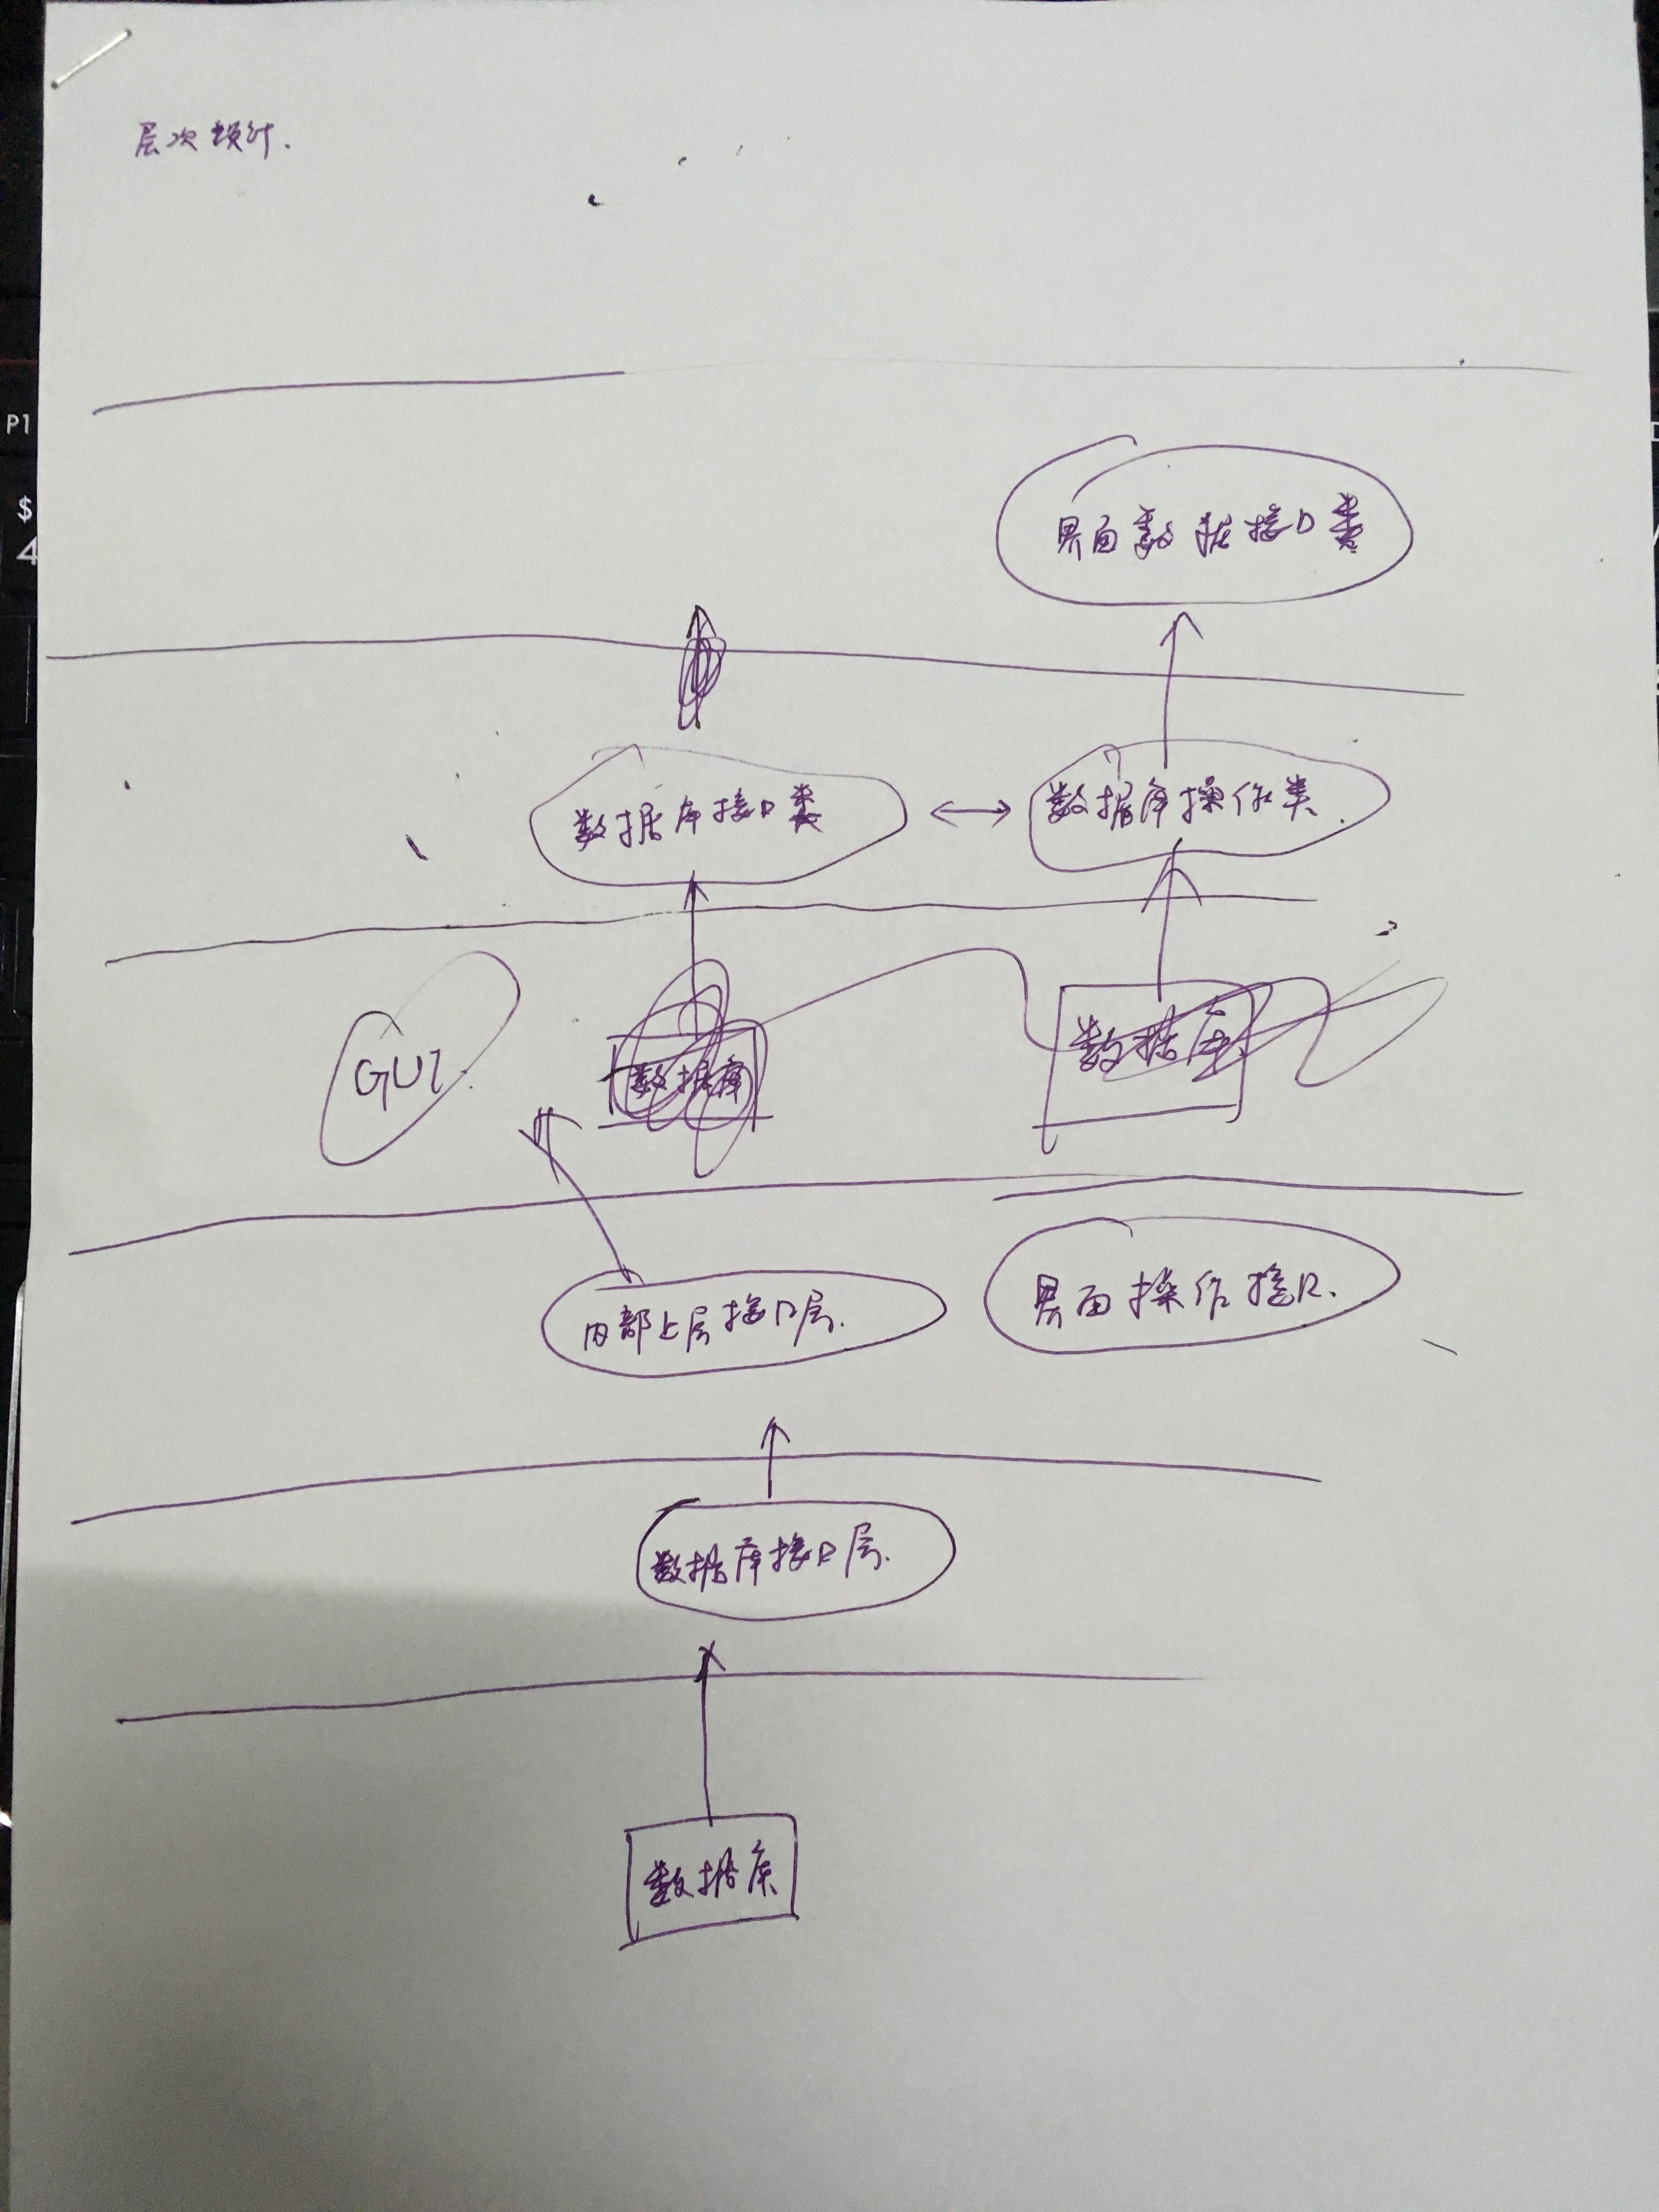 层次设计.
P1
$
4
界面数据接口类
数据库接口类
数据库操作类.
GUI.
数据库
数据库
内部上层接口层.
界面操作接口.
数据库接口层.
数据库